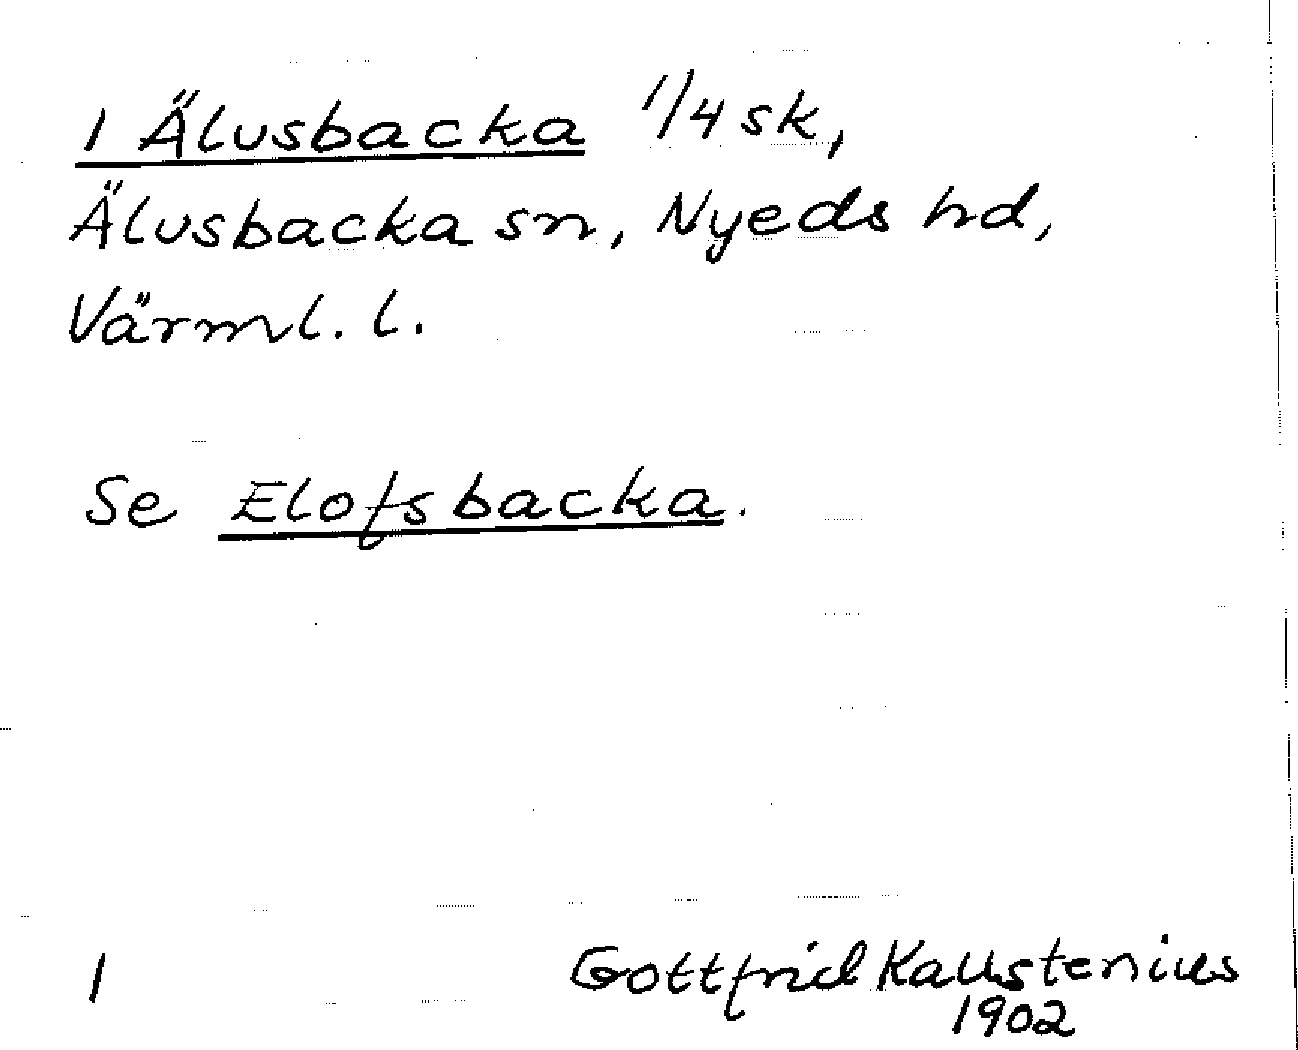 1 Älvsbacka 1/4 sk,
Älvsbacka sn, Nyeds hd,
Värml. l.
Se Elofsbacka.
1 Gottfrid Kallstenius
1902